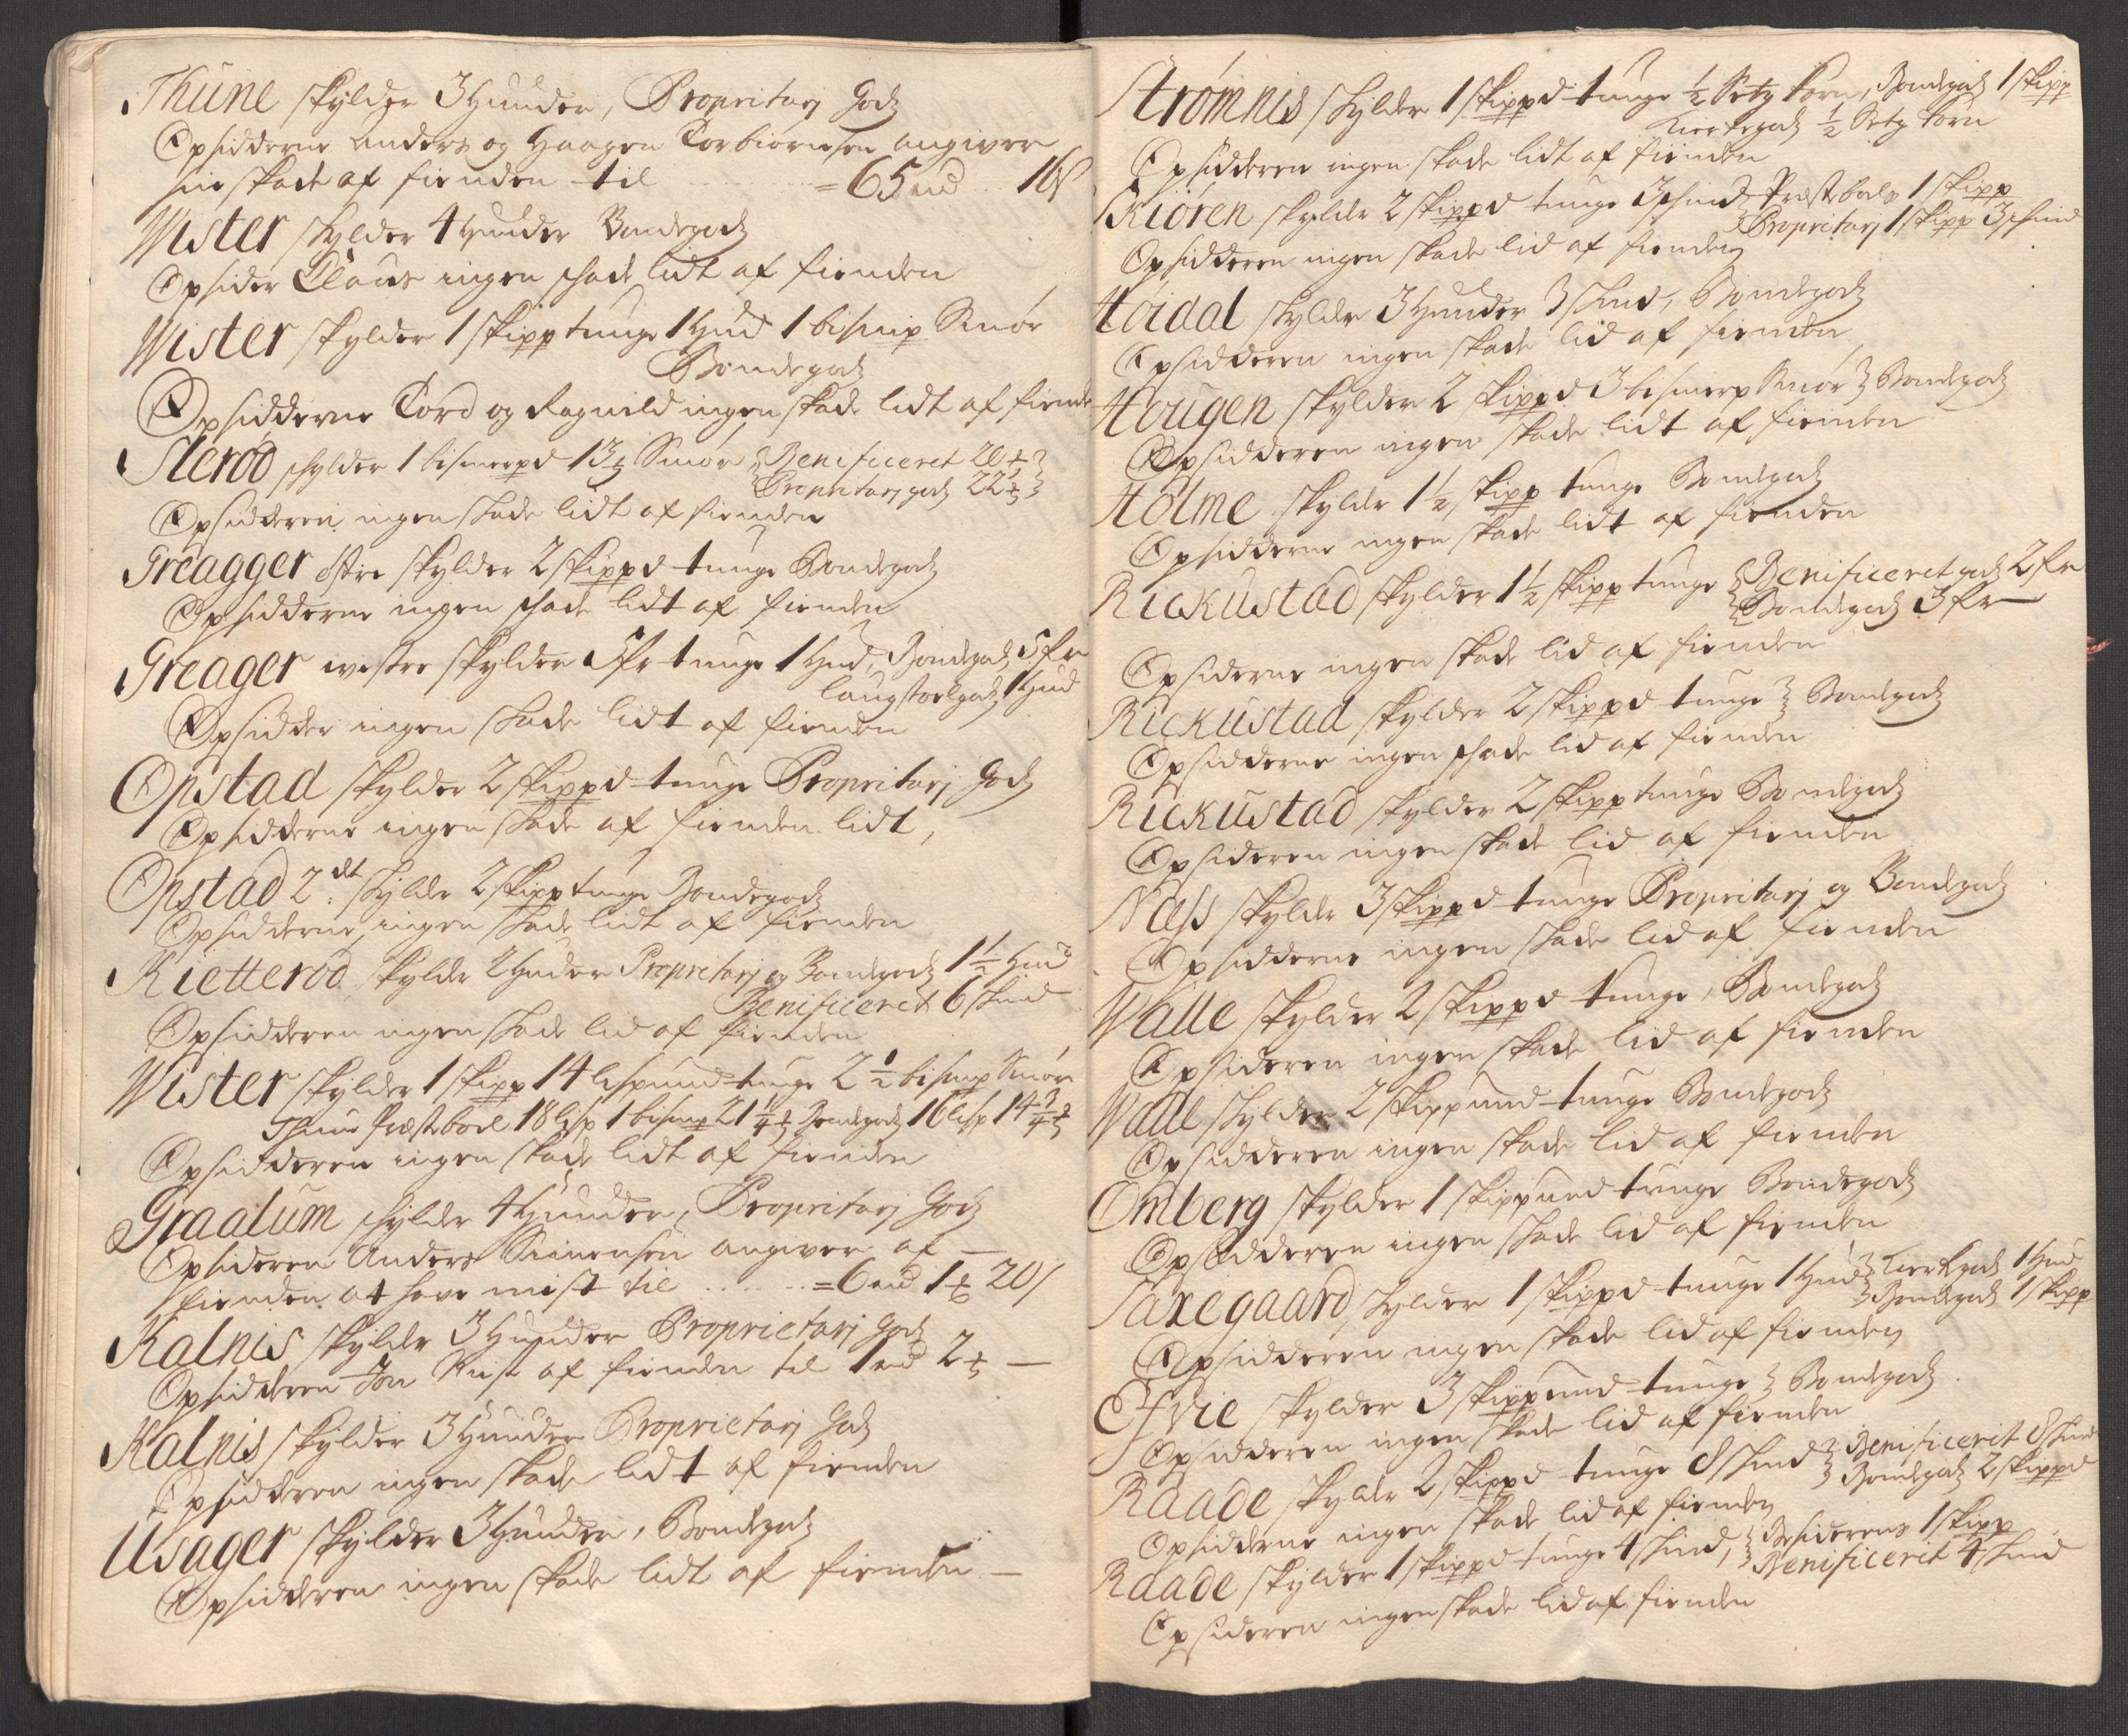 Thune skylder 3 Hunder, Propritarj Godz
Opsidderne Anders og Haagen Torbiørnsen angiver
sin skade af fienden til = 65 rd 16 s
Wister skylder 4 Hunder Bondegodz
Opsider Claus ingen skade lidt af fienden
Wister skylder 1 skipp tunge 1 Hud 1 bismp Smør
Bondegodz
Opsidderne Tord og Ragnild ingen skade lidt af fiende
Sterød skylder 1 bismerpd 13 Smør Benificeret 20
Propritarj godz 22
Opsidderen ingen skade lidt af fienden
Greagger østre skylder 2 skippd tunge Bondegodz
Opsidderne ingen skade lidt af fienden
Greager westre skylder 5 fr tunge 1 Hud, Bondegodz 5 fr
laugstoelgodz 1 Hud
Opsidder ingen skade lidt af fienden
Opstad skylder 2 skippd tunge Propritarj Godz
Opsidderne ingen skade af fienden lidt,
Opstad 2dt: skylder 2 skipp tunge Bondegodz
Opsidderne ingen skade lidt af fienden
Kietterød skylder 2 Huder Propritarj og Bondegodz 1½ Hud
Benificeret 6 skind
Opsidderen ingen skade lid af fienden
Wister skylder 1 skipp 14 lispund tunge 2½ bismp Smør
Thune Præsteboel 18 lisp 1 bismp 21¼ Bondegodz 16 lisp 14¾
Opsidderen ingen skade lidt af fienden
Graalum skylder 4 Hunder, Propritarj Godz
Opsideren Anders Simensen angiver af
fienden at have mist til = 6 rd 1 20 s
Kalnis skylder 3 Hunder Proprietarj Godz
Opsidderen Jon Mist af fienden til 1 rd 2 —
Kalnis skylder 3 Hunder Proprietarj Godz
Opsidderen ingen skade lidt af fienden
Usager skylder 3 Hunder, Bondegodz
Opsidderen ingen skade lidt af fienden —
Strømnis skylder 1 skippd tunge ½ Setz Korn, Bondegodz 1 skipp
Kierkegodz ½ Setz Korn
Opsidderen ingen skade lidt af fienden
Kiøren skylder 2 skippd tunge 3 skind Præstebols 1 skipp
Propritarj 1 skipp 3 skind
Opsidderen ingen skade lid af fienden
Høidal skylder 3 Hunder 3 skind, Bondegodz
Opsidderen ingen skade lid af fienden
Hougen skylder 2 skippd 3 bismerp Smør Bondegodz
Opsidderen ingen skade lidt af fienden
Holme skylder 1½ skipp tunge Bondegodz
Opsidderne ingen skade lidt af fienden
Rickustad skylder 1½ skipp tunge Benificeret godz 2 fr
Bondegodz 3 fr
Opsiderne ingen skade lid af fienden
Rickustad skylder 2 skippd tunge Bondegodz
Opsidderne ingen skade lid af fienden
Rickustad skylder 2 skipp tunge Bondegodz
Opsideren ingen skade lid af fienden
Næss skylder 3 skippd tunge Propritarj og Bondegodz
Opsidderne ingen skade lid af fienden
Walle skylder 2 skippd tunge, Bondegodz
Opsideren ingen skade lid af fienden
Walle skylder 2 skippund tunge Bondegodz
Opsidderen ingen skade lid af fienden
Omberg skylder 1 skippund tunge Bondegodz
Opsidderen ingen skade lid af fienden
Saxegaard skylder 1 skippd tunge 1 Hud Kierkgodz 1 Hud
Bondegodz 1 skipp
Opsidderen ingen skade lid af fienden
Efvie skylder 3 skippund tunge Bondegodz
Opsidderen ingen skade lid af fienden
Raade skylder 2 skippd tunge 8 skind Benificerit 8 skind
Bondegodz 2 skippd
Opsidderne ingen skade lid af fienden
Raade skylder 1 skippd tunge 4 skind, Besiderens 1 skipp
Benificerit 4 skind
Opsideren ingen skade lid af fienden